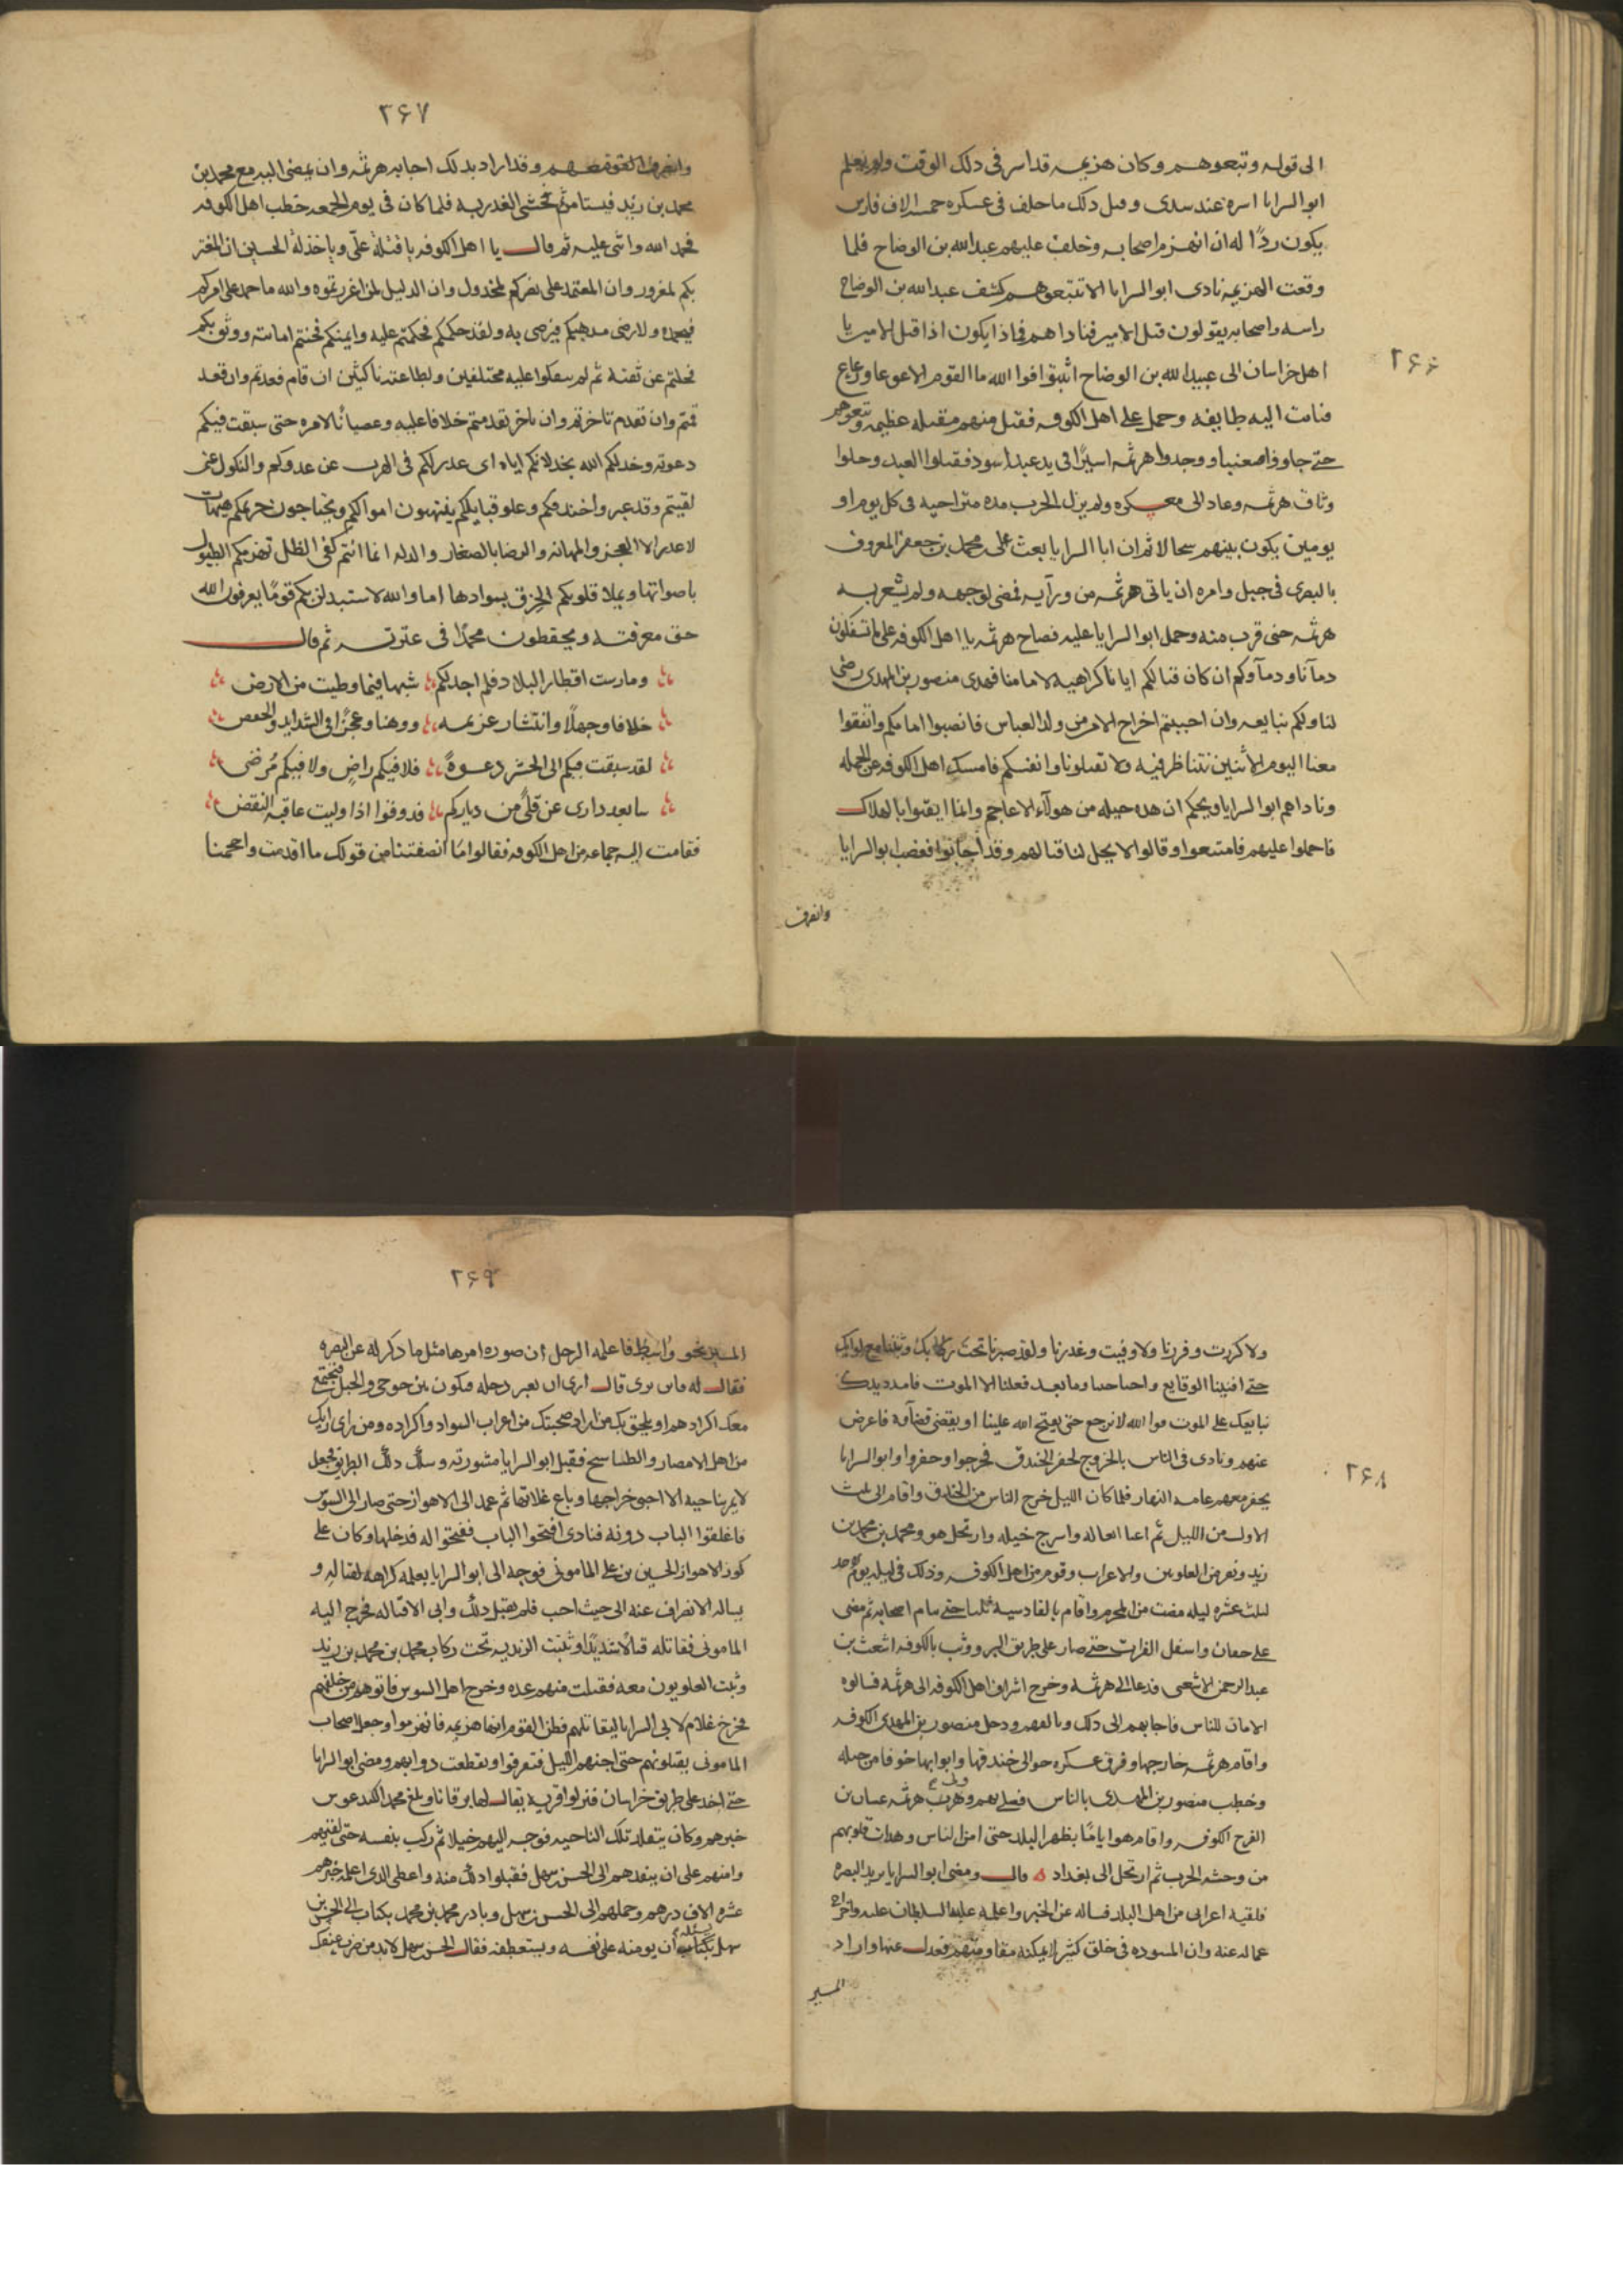 ٢۶۶
الى قوله وتبعوهم وكان هزيمه قد اسر فى ذلك الوقت ولم يعلم
ابو السرايا اسره عند سدى وقبل ذلك ما خلف فى عسكره خمسه الاف فارس
يكون ردًا له ان انهزم اصحابه وخلف عليهم عبدالله بن الوضاح فلما
وقعت الهزيمه نادى ابو السرايا لا تتبعوهم كشف عبدالله بن الوضاح
راسه واصحابه يقولون قتل الامير فناداهم فماذا يكون اذا قتل الامير يا
اهل خراسان الى عبيدالله بن الوضاح اثبتوا فوا الله ما القوم الا غوغا ورعاع
فثابت اليه طايفه وحمل على اهل الكوفه فقتل منهم مقتله عظيمه وتبعوهم
حتى جاوزوا صعنبا ووجدوا هرثمه اسيرًا فى يد عبد اسود فقتلوا العبد وحلوا
وثاق هرثمه وعاد الى معسكره ولم يزل الحرب مده متراخيه فى كل يوم او
يومين يكون بينهم سجالا ثم ان ابا السرايا بعث على محمد بن جعفر المعروف
بالبصرى فى جبل وامره ان ياتى هرثمه من ورآيه فمضى لوجهه ولم يشعر به
هرثمه حتى قرب منه وحمل ابو السرايا عليه فصاح هرثمه يا اهل الكوفه على م تسفكون
دمآنا ودمآوكم ان كان قتالكم ايانا كراهيه لامامنا فهذى منصور بن المهدى رضى
لنا ولكم نبايعه وان احببتم اخراج الامر من ولد العباس فانصبوا امامكم واتفقوا
معنا اليوم الاثنين نتناظر فيه ولا تقتلونا وانفسكم فامسك اهل الكوفه عن الحمله
وناداهم ابو السرايا ويحكم ان هذه حيله من هولآء الاعاجم وانما ايقنوا بالهلاك
فاحملوا عليهم فامتنعوا وقالوا لا يحل لنا قتالهم وقد اجابوا فغضب ابو السرايا
وانصرف
٢۶٧
وانصرف وقد اراد بذلك اجابه هرثمه وان يمضى اليه مع محمد بن
محمد بن زيد فيستامن ثم خشى الغدر به فلما كان فى يوم الجمعه خطب اهل الكوفه
فحمد الله واثنى عليه ثم قال يا اهل الكوفه يا قتلة على ويا خذلة الحسين ان المغتر
بكم لمغرور وان المعتمد على نصركم لمخذول وان الذليل لمن اعززتموه والله ما حمد على امركم
فنحمده ولا رضى مذهبكم فنرضى به ولقد حكمكم فحكمتم عليه وايمنكم فخنتم امانته ووثق بكم
فحلتم عن ثقته ثم لم تنفكوا عليه مختلفين ولطاعته ناكثين ان قام قعدتم وان قعد
قمتم وان تقدم تاخرتم وان تاخر تقدمتم خلافا عليه وعصيانًا لامره حتى سبقت فيكم
دعوته وخذلكم الله بخذلانكم اياه اى عذر لكم فى الهرب عن عدوكم والنكول عن
لقيتم وقد عبروا خندقكم وعلوا قبايلكم ينتهبون اموالكم ويجتاحون حريمكم هيهات
لا عذر الا العجز والمهانه والرضا بالصغار والذله انما انتم كفى الظل تهزمكم الطبول
باصواتها ويملا قلوبكم الخرق بسوادها اما والله لاستبدلن بكم قومًا يعرفون الله
حق معرفته ويحفظون محمدًا فى عترته ثم قال
ومارست اقطار البلاد فلم اجد لكم شبها فيما وطيت من الارض
خلافا وجهلا وانتشار عزيمه ووهنا وعجزًا فى الشدايد والخفض
لقد سبقت فيكم الى الحشر دعوةً فلا فيكم راضٍ ولا فيكم مُرضى
سابعد دارى عن قلًى من دياركم فذوقوا اذا وليت عاقبه النقض
فقامت اليه جماعه من اهل الكوفه فقالوا ما انصفتنا من قولك ما اقدمت واحجمنا
٢۶٨
ولا كررت وفررنا ولا وفيت وغدرنا ولقد صبرنا تحت ركابك وثبتنا مع لوايك
حتى افنيتنا الوقايع واجتاحتنا وما بعد فعلنا الا الموت فامدد يدك
نبايعك على الموت فوا الله لا نرجع حتى يفتح الله علينا او يقضى قضآه فاعرض
عنهم ونادى فى الناس بالخروج لحفر الخندق فخرجوا وحفروا وابو السرايا
يحفر معهم عامه النهار فلما كان الليل خرج الناس من الخندق واقام الى ثلث
الاول من الليل ثم اعبا بغاله واسرج خيله وارتحل هو ومحمد بن محمد بن
زيد ونفر من العلويين والاعراب وقوم من اهل الكوفه وذلك فى ليله يوم الاحد
لثلث عشره ليله مضت من المحرم واقام بالقادسيه ثلثا حتى تام اصحابه ثم مضى
على خفان واسفل الفرات حتى صار على طريق البر ووثب بالكوفه اشعث بن
عبد الرحمن الاشعى فدعا الى هرثمه وخرج اشراف اهل الكوفه الى هرثمه فسالوه
الامان للناس فاجابهم الى ذلك وتالفهم ودخل منصور بن المهدى الكوفه
واقام هرثمه خارجها وفرق عسكره حوالى خندقها وابوابها خوفا من حيله
وخطب منصور بن المهدى بالناس فصلى بهم وهرب هرثمه غسان بن
الفرج الكوفه واقام هو اياما بظهر البلد حتى امن الناس وهدات قلوبهم
من وحشه الحرب ثم ارتحل الى بغداد ه قال ومضى ابو السرايا يريد البصره
فلقيه اعرابى من اهل البلد فساله عن الخبر واعلمه غلبه السلطان عليه واخراج
عماله عنه وان المسوده فى خلق كثير لا يمكنه مقاومتهم فعدل عنها واراد
المسير
٢۶٩
المسير نحو واسط فاعلمه الرجل ان صوره امرها مثل ما ذكر له عن البصره
فقال له فاين ترى قال ارى ان تعبر دجله فتكون بين جوخى والجبل فيجتمع
معك اكرادهم ويلحق بك من اراد صحبتك من اعراب السواد واكراده ومن راى رايك
من اهل الامصار والطساسيج فقبل ابو السرايا مشورته وسلك ذلك الطريق فجعل
لا يمر بناحيه الا اجبى خراجها وباع غلاتها ثم عمد الى الاهواز حتى صار الى السوس
فاغلقوا الباب دونه فنادى افتحوا الباب ففتحوا له فدخلها وكان على
كور الاهواز الحسين بن على المامونى فوجه الى ابو السرايا يعلمه كراهه لقتاله و
يساله الانصراف عنه الى حيث احب فلم يقبل ذلك وابى الا قتاله فخرج اليه
المامونى فقاتله قتالا شديدًا وثبتت الزيديه تحت ركاب محمد بن محمد بن زيد
وثبت العلويون معه فقتلت منهم عده وخرج اهل السوس فاتوهم من خلفهم
فخرج غلام لابى السرايا ليقاتلهم فظن القوم انها هزيمه فانهزموا وجعل اصحاب
المامونى يقتلونهم حتى اجنهم الليل فتفرقوا وتقطعت دوابهم ومضى ابو السرايا
حتى اخذ على طريق خراسان فنزلوا قريه يقال لها برقانا وبلغ محمد الكندغوس
خبرهم وكان يتقلد تلك الناحيه فوجه اليهم خيلا ثم ركب بنفسه حتى لقيهم
وامنهم على ان ينفذهم الى الحسن بن سهل فقبلوا ذلك منه واعطى الذى اعلمه خبرهم
عشره الاف درهم وحملهم الى الحسن بن سهل وبادر محمد بن محمد بكتاب الى الحسن بن
سهل بكتاب يسئله ان يومنه على نفسه ويستعطفه فقال الحسن بن سهل لا بد من ضرب عنقك